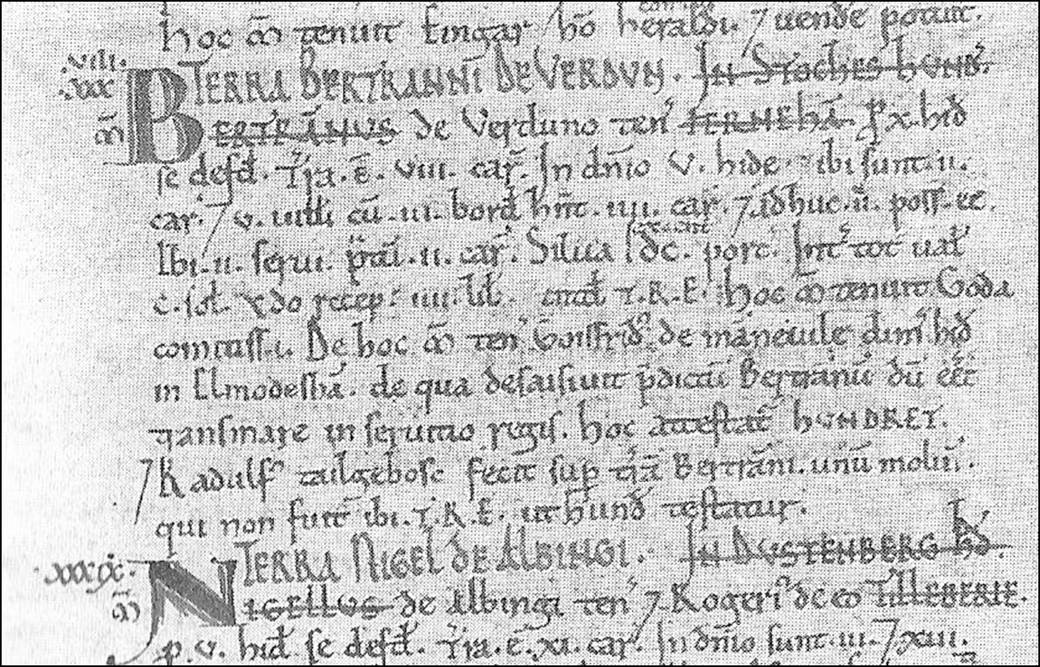 hoc m̃ tenuit Eingar hō heraldi. ⁊ uende potuit.
.viii.
.xxx. TERRA BERTRANNI DE VERDUN. IN STOCHES HUND.
m̃ BERTRANUS de Verduno ten' FERNEHA. p x. hid
se defd. Tra. ē. viii. car. In dnio v. hide. ibi sunt. ii.
car. ⁊ v. uilli cū. iii. bord hnt. iiii. car. ⁊ adhuc. ii. poss. ee.
Ibi. ii. serui. ptū. ii. car. Silua sde. porc. Int tot ual
c. sol. Qdo recep: iiii. lib. T.R.E. hoc m̃ tenuit Goda
comitissa. De hoc m̃ ten' Goisfrid' de maneuile dim' hid
in Elmodeshā. de qua desaisiuit pdictū Bertranū dū eēt
transmare in seruitio regis. hoc attestat HUNDRET.
⁊ Radulf' tailgebosc fecit sup trā Bertrāni. unū molin'.
qui non fuit ibi. T.R.E. ut hund testatur.
.xxxix. TERRA NIGEL DE ALBINGI. IN DUSTENBERG HD.
m̃ NIGELLUS de Albingi ten' ⁊ Roger' de eo TILLEBERIE.
p. v. hid se defd. Tra. ē. xi. car. In dnio sunt. iii. ⁊ xiii.